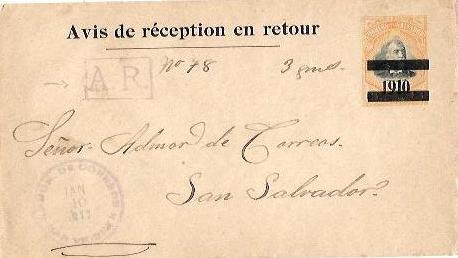 Avis de réception en retour
A.R. Nº 18 3 gms.
1910
Señor Admor de Correos
San Salvador.
DE CORREOS